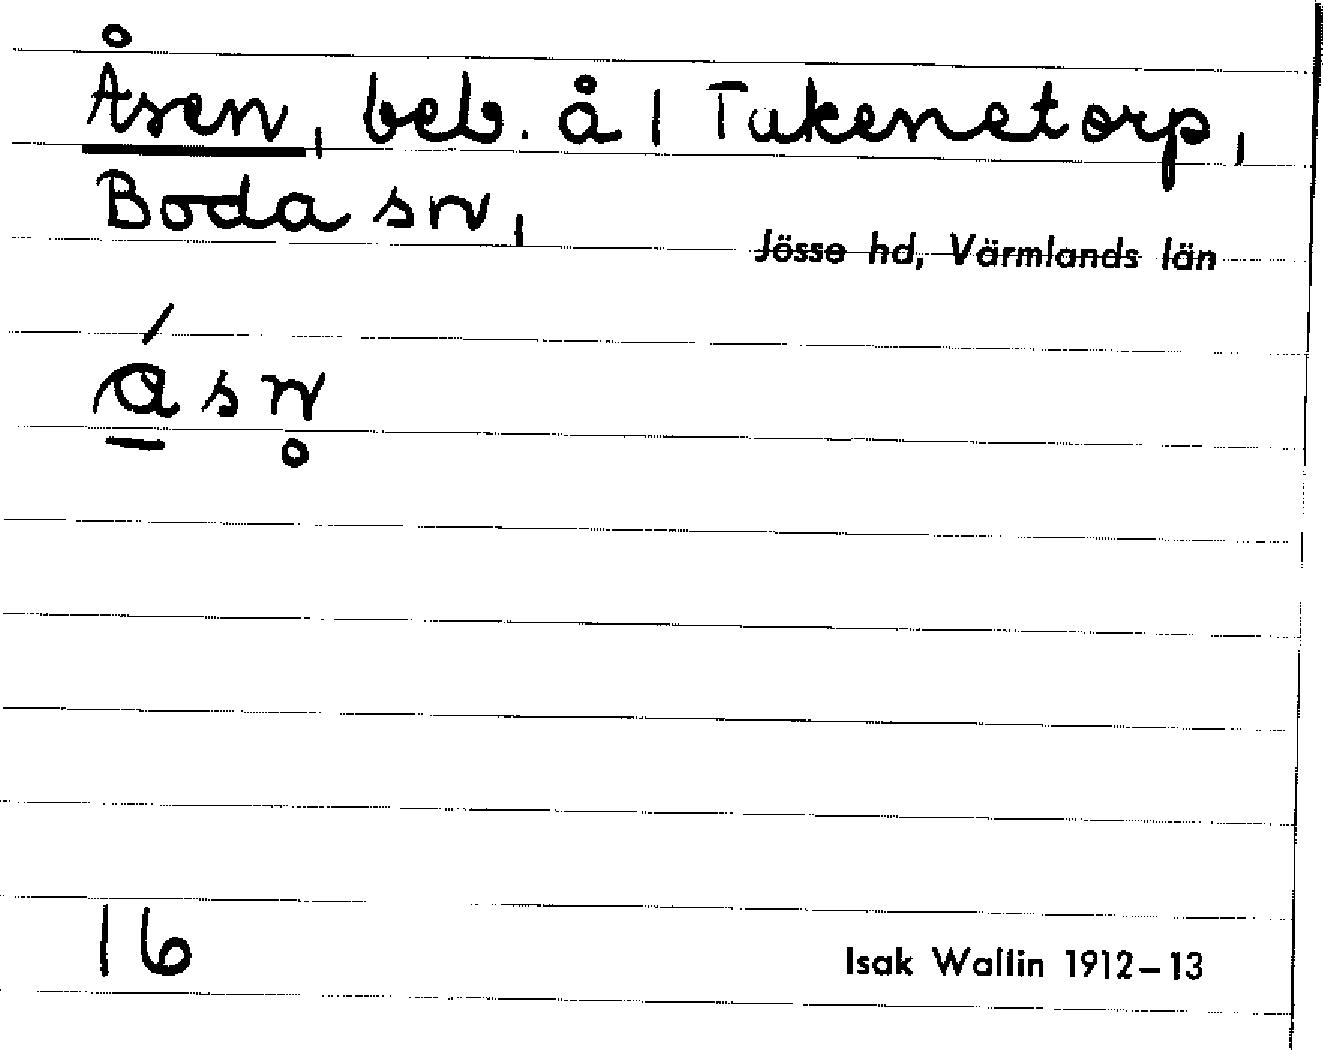 Åsen, beb. å 1 Takenetorp,
Boda sn,
Jösse hd, Värmlands län
16
Isak Wallin 1912–13